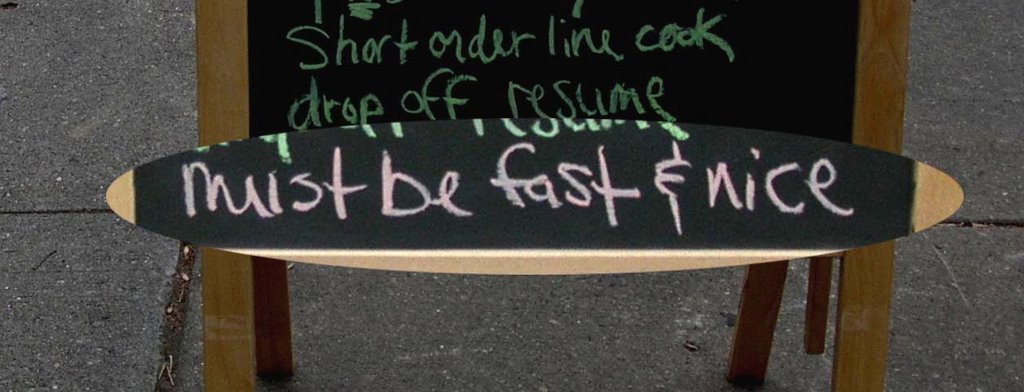 Short order line cook
drop off resume
must be fast & nice